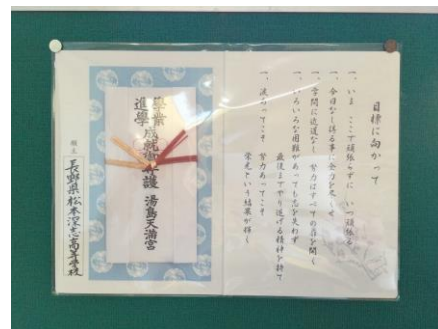 目標に向かって
一、いま ここで頑張らずに いつ頑張る
一、今日なし得る事に全力を尽くせ
一、学問に近道なし 努力はすべての扉を開く
一、いろいろな困難があっても志を失わず
最後までやり遂げる精神を持て
一、流れってこそ 努力あってこそ
栄光という結果が輝く
學業成就御守護 湯島天満宮
進學
願主
長野県松本深志高等学校